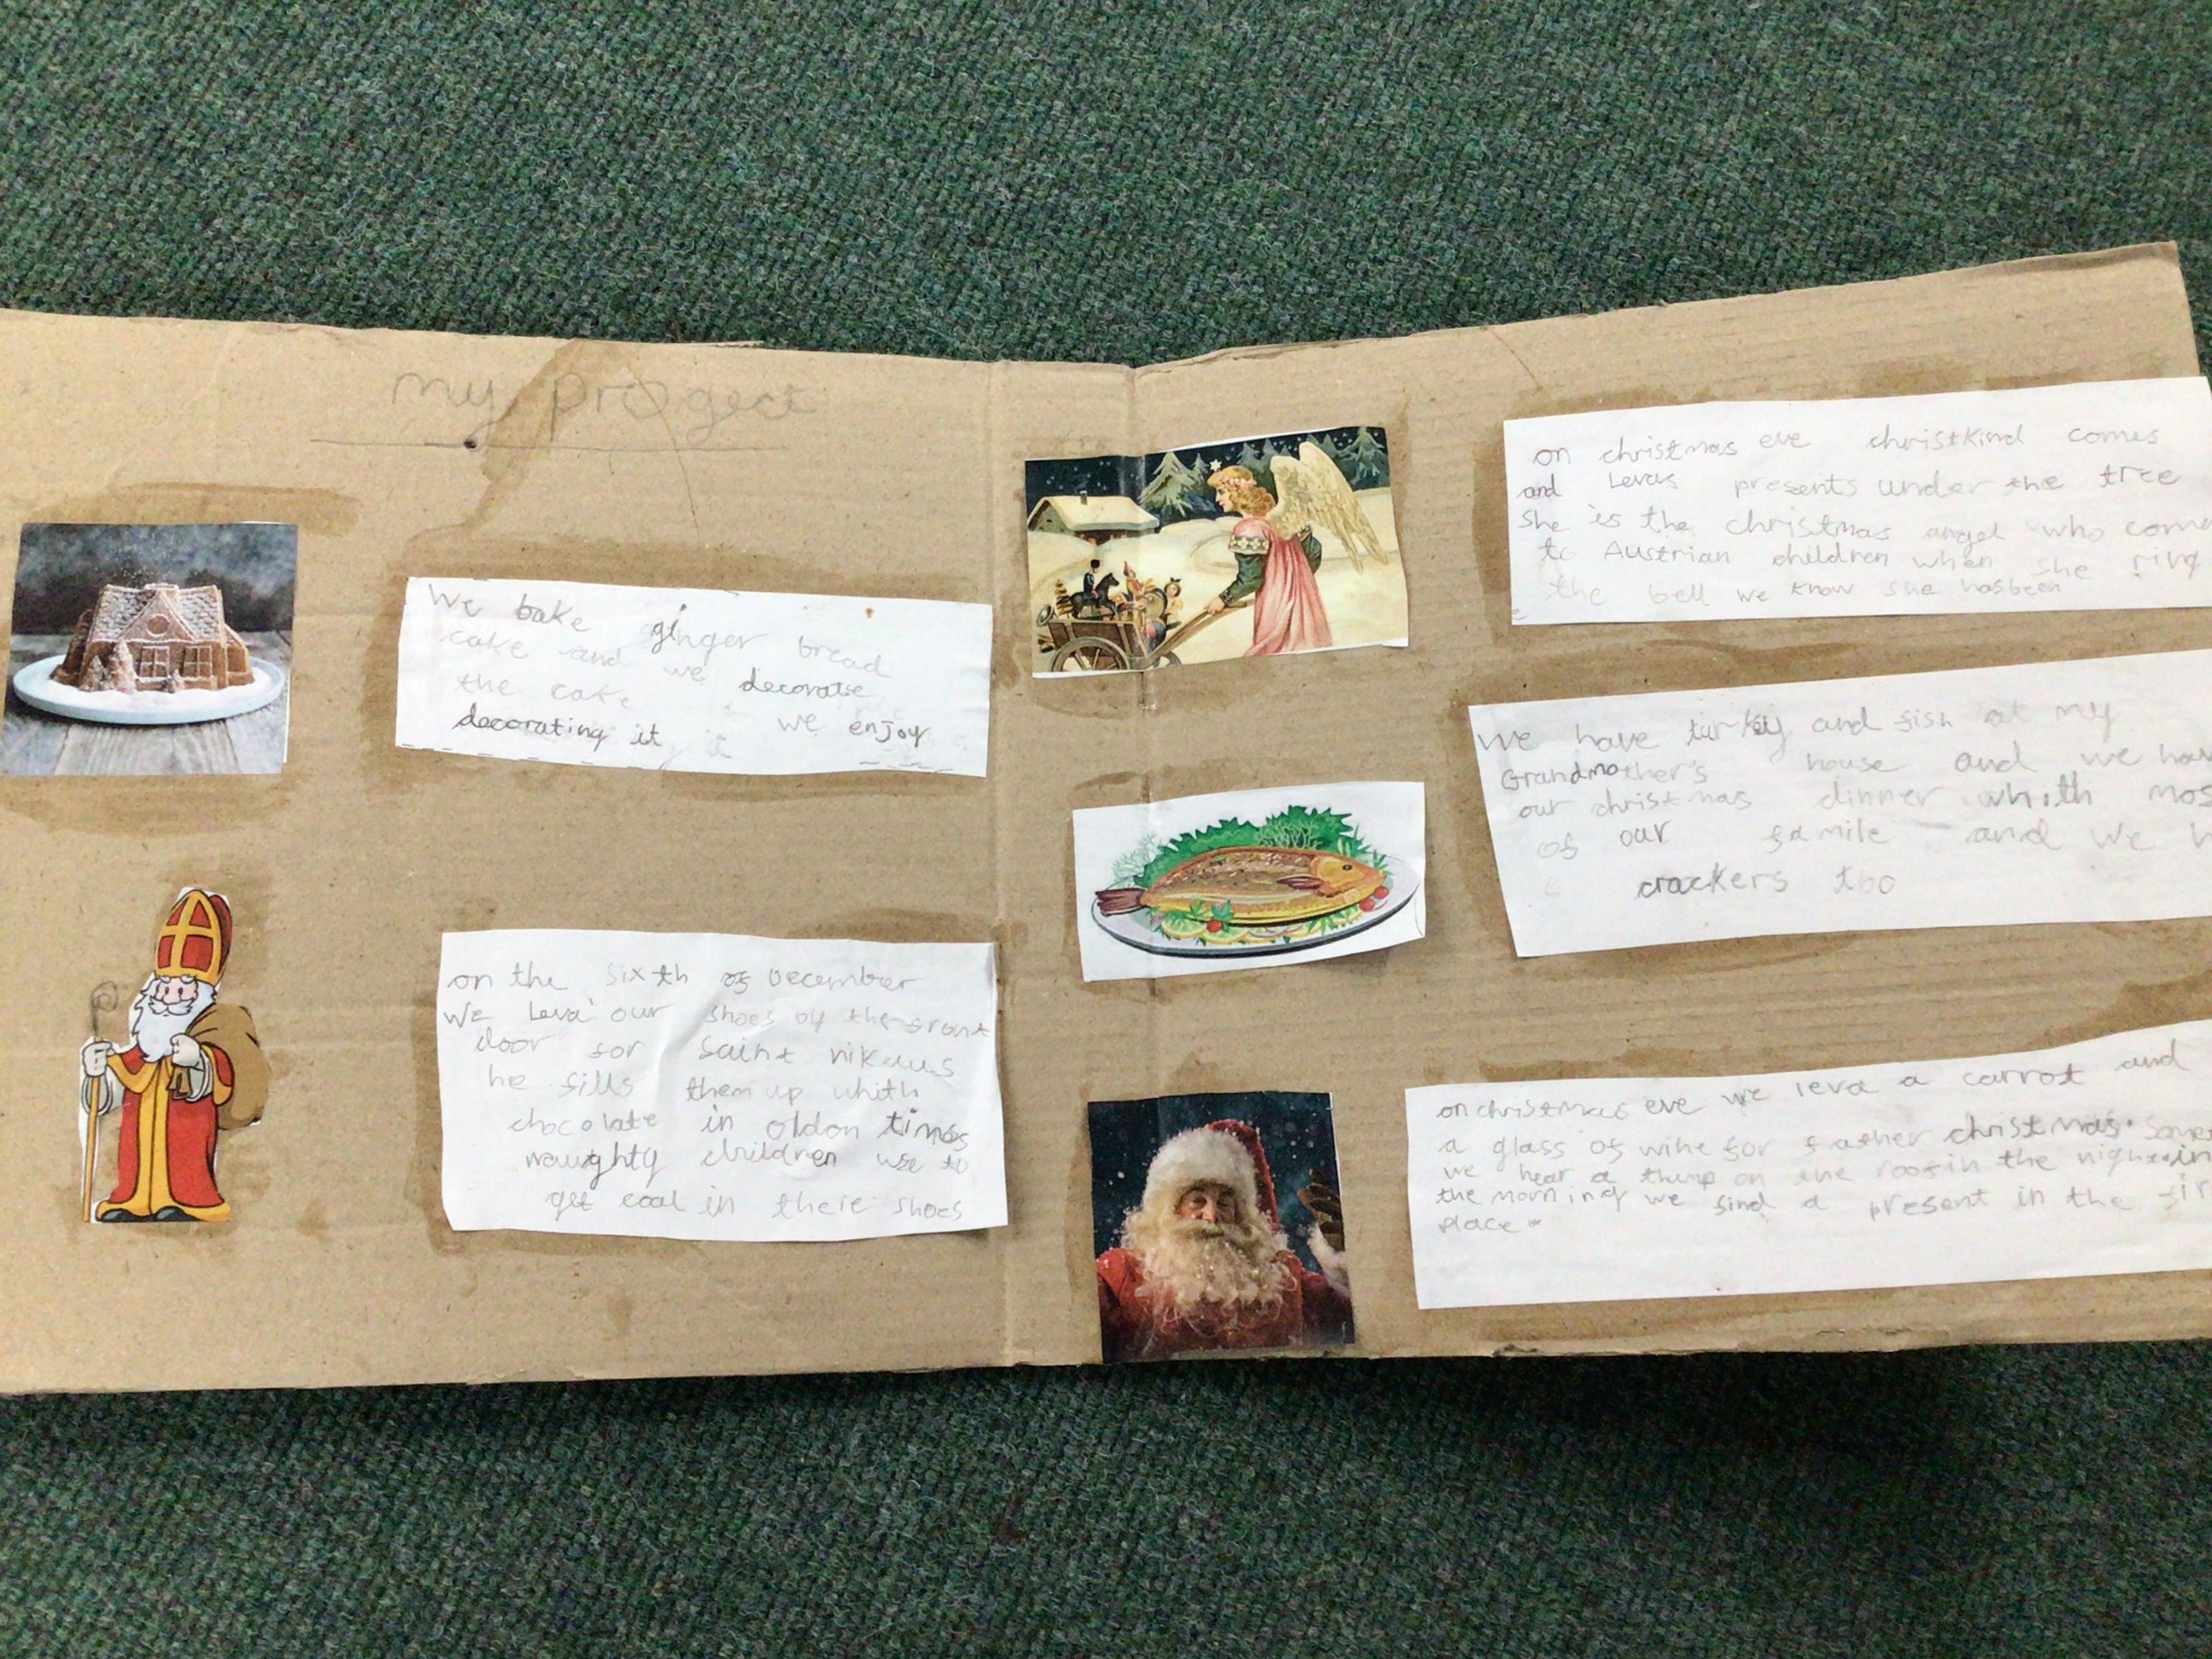 my progect
We bake ginger bread
cake and we decorate
the cake we enjoy
decorating it
on the sixth of December
We Leva our shoes by the front
door for Saint nikaus
he fills them up whith
chocolate in oldon times
naughty children use to
get coal in their shoes
on christmas eve christkind comes
and Levas presents under the tree
She is the christmas angel who come
to Austrian children when she ring
the bell we know she hasbeen
We have turkey and fish at my
Grandmother's house and we hav
our christmas dinner whith mos
of our famile and we
crackers too
on christmas eve we leva a carrot and
a glass of wine for father christmas. Some
we hear a thump on the roof in the night in
the morning we find a present in the fir
place